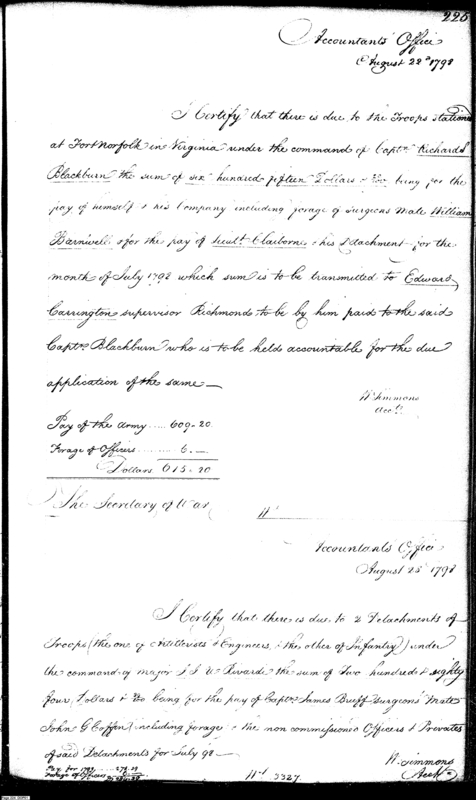 225
Accountants Office
August 22d 1798
I Certify that there is due to the Troops stationd
at Fort Norfolk in Virginia under the command of Captn Richard S
Blackburn the sum of six hundred fifteen Dollars & 20/100 being for the
pay of himself & his Company including forage of Surgeons Mate William
Barnwell & for the pay of Lieut. Claiborne & his Detachment for the
month of July 1798 which sum is to be transmitted to Edward
Carrington supervisor Richmond to be by him paid to the said
Captn Blackburn who is to be held accountable for the due
application of the same
W Simmons
Acct
Pay of the Army ..... 609-20
Forage of Officers ..... 6.—
Dollars 615-20
The Secretary of War
Accountants Office
August 25 1798
I Certify that there is due to 2 Detachments of
Troops (the one of Artillerists & Engineers, & the other of Infantry) under
the command of Major J J U Rivardi the sum of Two hundred & eighty
four Dollars & being for the pay of Captn James Bruff Surgeons Mate
John G Coffin (including forage & the non commissioned Officers & Privates
of said Detachments for July 98
W. Simmons
Acct
Pay for 1798
Forage of Officers